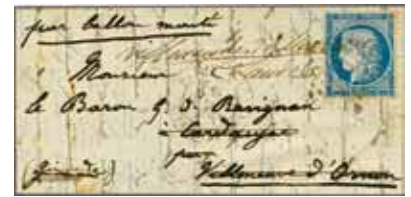 par ballon monté
Monsieur
le Baron G de Ravignan
à
par
Villeneuve d'Ornon
(Gironde)